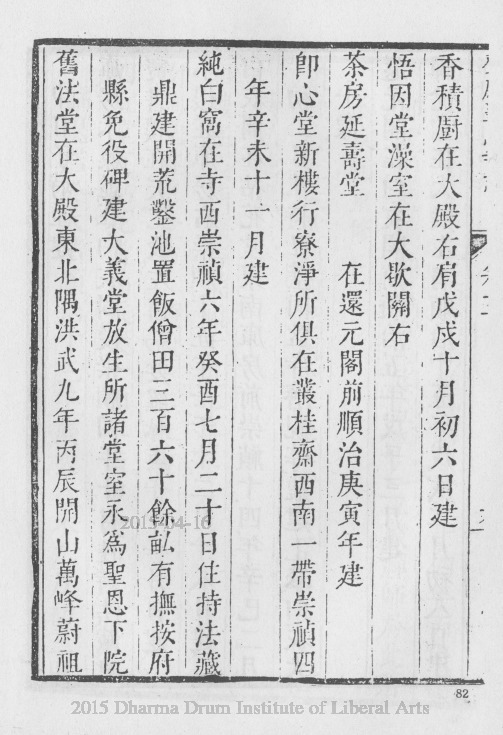 香積厨在大殿右肩戊戌十月初六日建
悟因堂澡室在大歇關右
茶房延壽堂　　在還元閣前順治庚寅年建
卽心堂新樓行寮淨所俱在叢桂齋西南一帶崇禎四
年辛未十一月建
純白窩在寺西崇禎六年癸酉七月二十日住持法藏
鼎建開荒鑿池置飯僧田三百六十餘畝有撫按府
縣免役碑建大義堂放生所諸堂室永為聖恩下院
舊法堂在大殿東北隅洪武九年丙辰開山萬峰蔚祖
82
2015-04-16
2015 Dharma Drum Institute of Liberal Arts